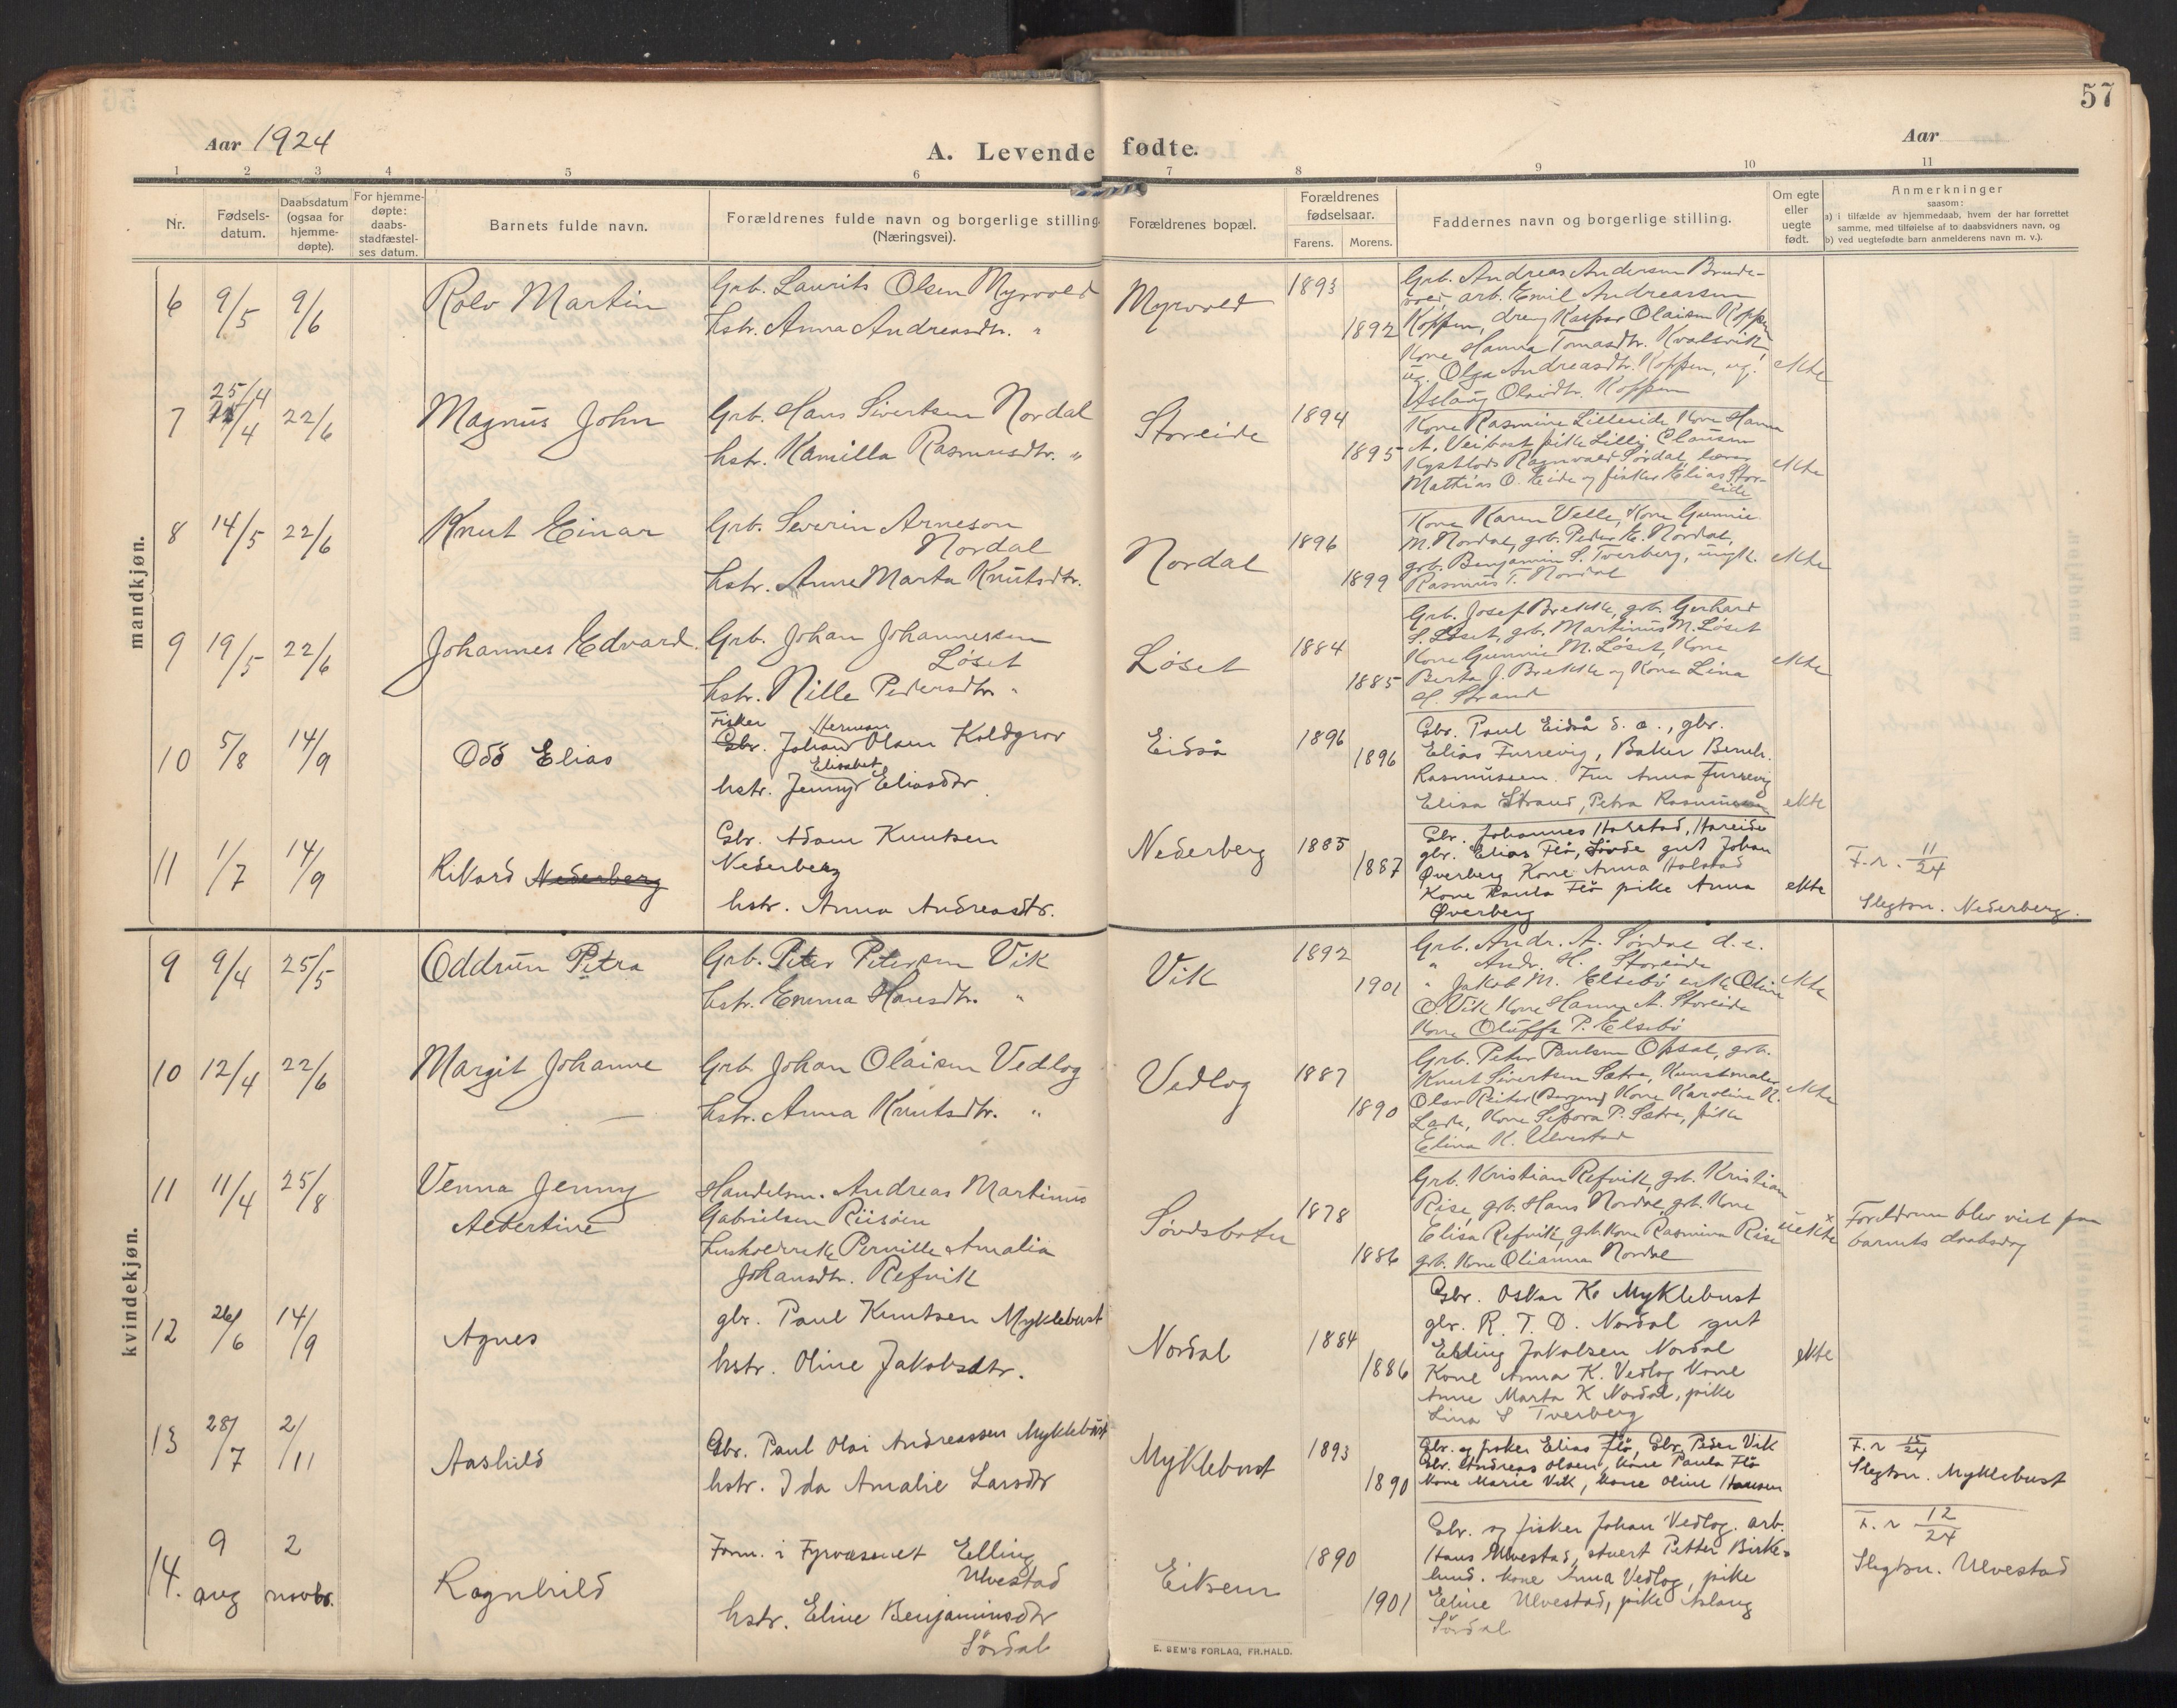 57
Aar 1924
A. Levende fødte.
Aar
1 2 3 4 5 6 7 8 9 10 11
Nr.
Fødsels-
datum.
Daabsdatum
(ogsaa for
hjemme-
døpte).
For hjemme-
døpte:
daabs-
stadfæstel-
ses datum.
Barnets fulde navn.
Forældrenes fulde navn og borgerlige stilling
(Næringsvei).
Forældrenes bopæl.
Forældrenes
fødselsaar.
Farens. Morens.
Faddernes navn og borgerlige stilling.
Om egte
eller
uegte
født.
Anmerkninger
saasom:
a) i tilfælde av hjemmedaab, hvem der har forrettet
samme, med tilføielse af to daabsvidners navn, og
b) ved uegtefødte barn anmelderens navn m. v.).
mandkjøn.
6 9/5 9/6
Rolv Martin
Grb. Laurits Olsen Myrvold
hstr. Anna Andreasdtr. "
Myrvold
1893
1892
Grb. Andreas Andersen Brude-
void, arb. Emil Andreassen
Koppen, dreng Kaspar Olaisen Koppen
Kone Hanna Tomasdtr. Kvalsvik,
ug. Olga Andreasdtr. Koppen, ug.
Aslaug Olavdtr. Koppen
ekte
7 25/4 22/6
Magnus John
Grb. Hans Sivertsen Nordal
hstr. Kamilla Rasmusdtr. "
Storeide
1894
1895
Kone Rasmine Lilleeide Kone Hanna
A. Veibust pike Lilly Clausen
Kystlods Ragnvald Sørdal, lærer
Mathias O. Eide og fisker Elias Stor-
eide
ekte
8 14/5 22/6
Knut Einar
Grb. Severin Arneson
Nordal
hstr. Anne Marta Knutsdtr.
Nordal
1896
1899
Kone Karen Velle, Kone Gunnie
M. Nordal, grb. Peder E. Nordal,
grb. Benjamin S. Tverberg, ungk.
Rasmus T. Nordal
ekte
9 19/5 22/6
Johannes Edvard.
Grb. Johan Johannessen
Løset
hstr. Nille Pedersdtr. "
Løset
1884
1885
Grb. Josef Brekke, grb. Gerhard
S. Løset, grb. Martinus M. Løset
Kone Gunnie M. Løset, Kone
Berta J. Brekke og Kone Lina
H. Strand
ekte
10 5/8 14/9
Odd Elias
Fisker Herman
Gbr. Johan Olsen Koldgrov
Elisabet
hstr. Jenny Eliasdtr
Eidså
1896
1896
Gbr. Paul Eidså d. e., gbr.
Elias Furrevig, Baker Bernh.
Rasmussen. Fru Anna Furrevig
Elisa Strand, Petra Rasmussen
ekte
11 1/7 14/9
Rikard Nederberg
Gbr. Adam Knutsen
Nederberg
hstr. Anna Andreasdtr.
Nederberg
1885
1887
Gbr. Johannes Halstad, Hareide
gbr. Elias Flø, Søvde gut Johan
Øverberg Kone Anna Halstad
Kone Paula Flø pike Anna
Øverberg
ekte
F. r. 11/24
Slegtsn. Nederberg.
kvindekjøn.
9 9/4 25/5
Oddrun Petra
Grb. Peter Petersen Vik
hstr. Emma Hansdtr. "
Vik
1892
1901
Grb. Andr. A. Sørdal d. e.
" Andr. H. Storeide
" Jakob M. Elsebø enke Oline
O. Vik Kone Hanna A. Storeide
Kone Oluffa P. Elsebø
ekte
10 12/4 22/6
Margit Johanne
Grb. Johan Olaisen Vedlog
hstr. Anna Knutsdtr. "
Vedlog
1887
1890
Grb. Peter Paulsen Opsal, grb.
Knut Sivertsen Sætre, Kunstmaler
Olav Reiter (Bergen) Kone Karoline K.
Kone Sepora P. Sætre, pike
Elina K. Ulvestad
ekte
11 11/4 25/8
Venna Jenny
Albertine
Handelsm. Andreas Martinus
Gabrielsen Riisøen
husholderske Pernille Amalia
Johansdtr. Refvik
Søvdsbotn
1878
1886
Grb. Kristian Refvik, grb. Kristian
Rise, grb. Hans Nordal, grb. Kone
Elisa Refvik, grb. Kone Rasmina Rise
grb. Kone Olianna Nordal
uekte x
Foreldrene blev viet paa
barnets daabsdag
12 26/6 14/9
Agnes
gbr. Paul Knutsen Myklebust
hstr. Oline Jakobsdtr.
Nordal
1884
1886
Gbr. Oskar K. Myklebust
gbr. R. T. D. Nordal gut
Elding Jakobsen Nordal
Kone Anna K. Vedlog Kone
Anne Marta K Nordal, pike
Lina S Tverberg
ekte
13 28/7 2/11
Aashild
Gbr. Paul Olai Andreassen Myklebust
hstr. Ida Amalie Larsdtr
Myklebust
1893
1890
Gbr. og fisker Elias Flø, Gbr. Peder Vik
Gbr. Andreas Olsen, kone Paula Flø
Kone Marie Vik, kone Oline Hansen
F. r 15/24
Slegtsn. Myklebust
14. 9 aug 2 novbr.
Ragnhild
Form. i Fyrvæsenet Elling
Ulvestad
hstr. Eline Benjaminsdtr
Sørdal
Eiksem
1890
1901
Gbr. og fisker Johan Vedlog. arb.
Hans Ulvestad, stuert Petter Birke-
lund. kone Anna Vedlog, pike
Eline Ulvestad, pike Aslaug
Sørdal
F. r 12/24
Slegtsn. Ulvestad
E. SEM'S FORLAG, FR.HALD.